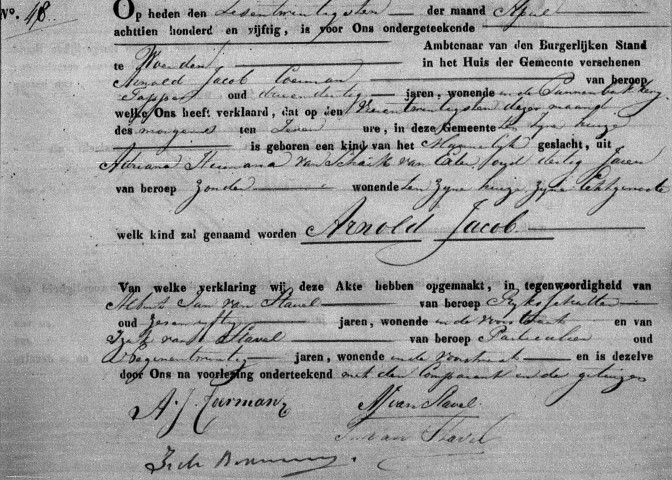 No. 48. Op heden den Zesentwintigsten der maand April
achttien honderd en vijftig, is voor Ons ondergeteekende
Ambtenaar van den Burgerlijken Stand
te Woerden in het Huis der Gemeente verschenen
Arnold Jacob van beroep
Tapper oud drieendertig jaren, wonende in de
welke Ons heeft verklaard, dat op den Vierentwintigsten dezer maand
des morgens ten Zeven ure, in deze Gemeente ten zyne huize
is geboren een kind van het Mannelijk geslacht, uit
Adriana Hermana van Schaik van oud dertig Jaren
van beroep Zonder wonende ten Zyne huize Zyne Echtgenoote
welk kind zal genaamd worden Arnold Jacob
Van welke verklaring wij deze Akte hebben opgemaakt, in tegenwoordigheid van
Albert Jan van Stavel van beroep
oud jaren, wonende in de voorstraat en van
van Stavel van beroep Particulier oud
Negenentwintig jaren, wonende in de voorstraat en is dezelve
door Ons na voorlezing onderteekend met den Comparant en de getuigen
A. J.
AJ van Stavel
van Stavel